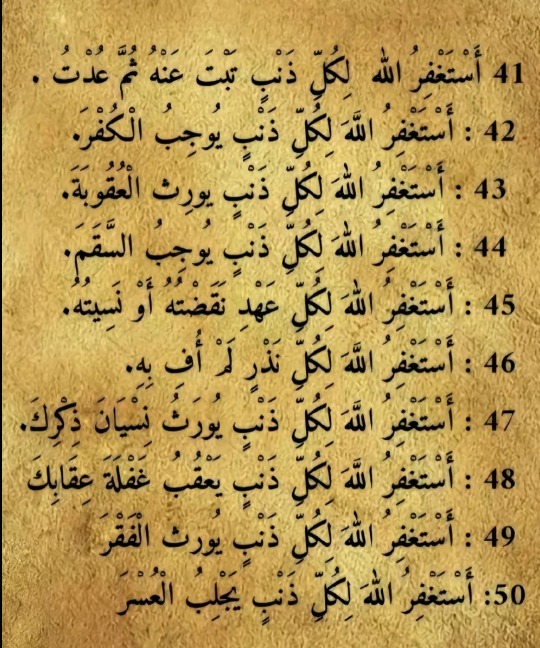 41 أَسْتَغْفِرُ الله لِكُلِّ ذَنْبٍ تَبْتَ عَنْهُ ثُمَّ عُدْتُ .
42 : أَسْتَغْفِرُ اللَّهَ لِكُلِّ ذَنْبٍ يُوجِبُ الْكُفْرَ.
43 : أَسْتَغْفِرُ اللهَ لِكُلِّ ذَنْبٍ يورِث الْعُقُوبَةَ.
44 : أَسْتَغْفِرُ اللهَ لِكُلِّ ذَنْبٍ يُوجِبُ السَّقَمَ.
45 : أَسْتَغْفِرُ اللهَ لِكُلِّ عَهْدِ نَقَضْتُهُ أَوْ نَسِيتُهُ.
46 : أَسْتَغْفِرُ اللَّهَ لِكُلِّ نَذْرٍ لَمْ أُفِ بِهِ.
47 : أَسْتَغْفِرُ اللَّهَ لِكُلِّ ذَنْبٍ يُورَثُ نِسْيَانَ ذِكْرِكَ.
48 : أَسْتَغْفِرُ اللَّهَ لِكُلِّ ذَنْبٍ يَعْقُبُ غَفْلَةَ عِقَابِكَ
49 : أَسْتَغْفِرُ اللهَ لِكُلِّ ذَنْبٍ يُورث الْفَقْرَ
50: أَسْتَغْفِرُ اللهَ لِكُلِّ ذَنْبٍ يَجْلِبُ الْعُسْرَ